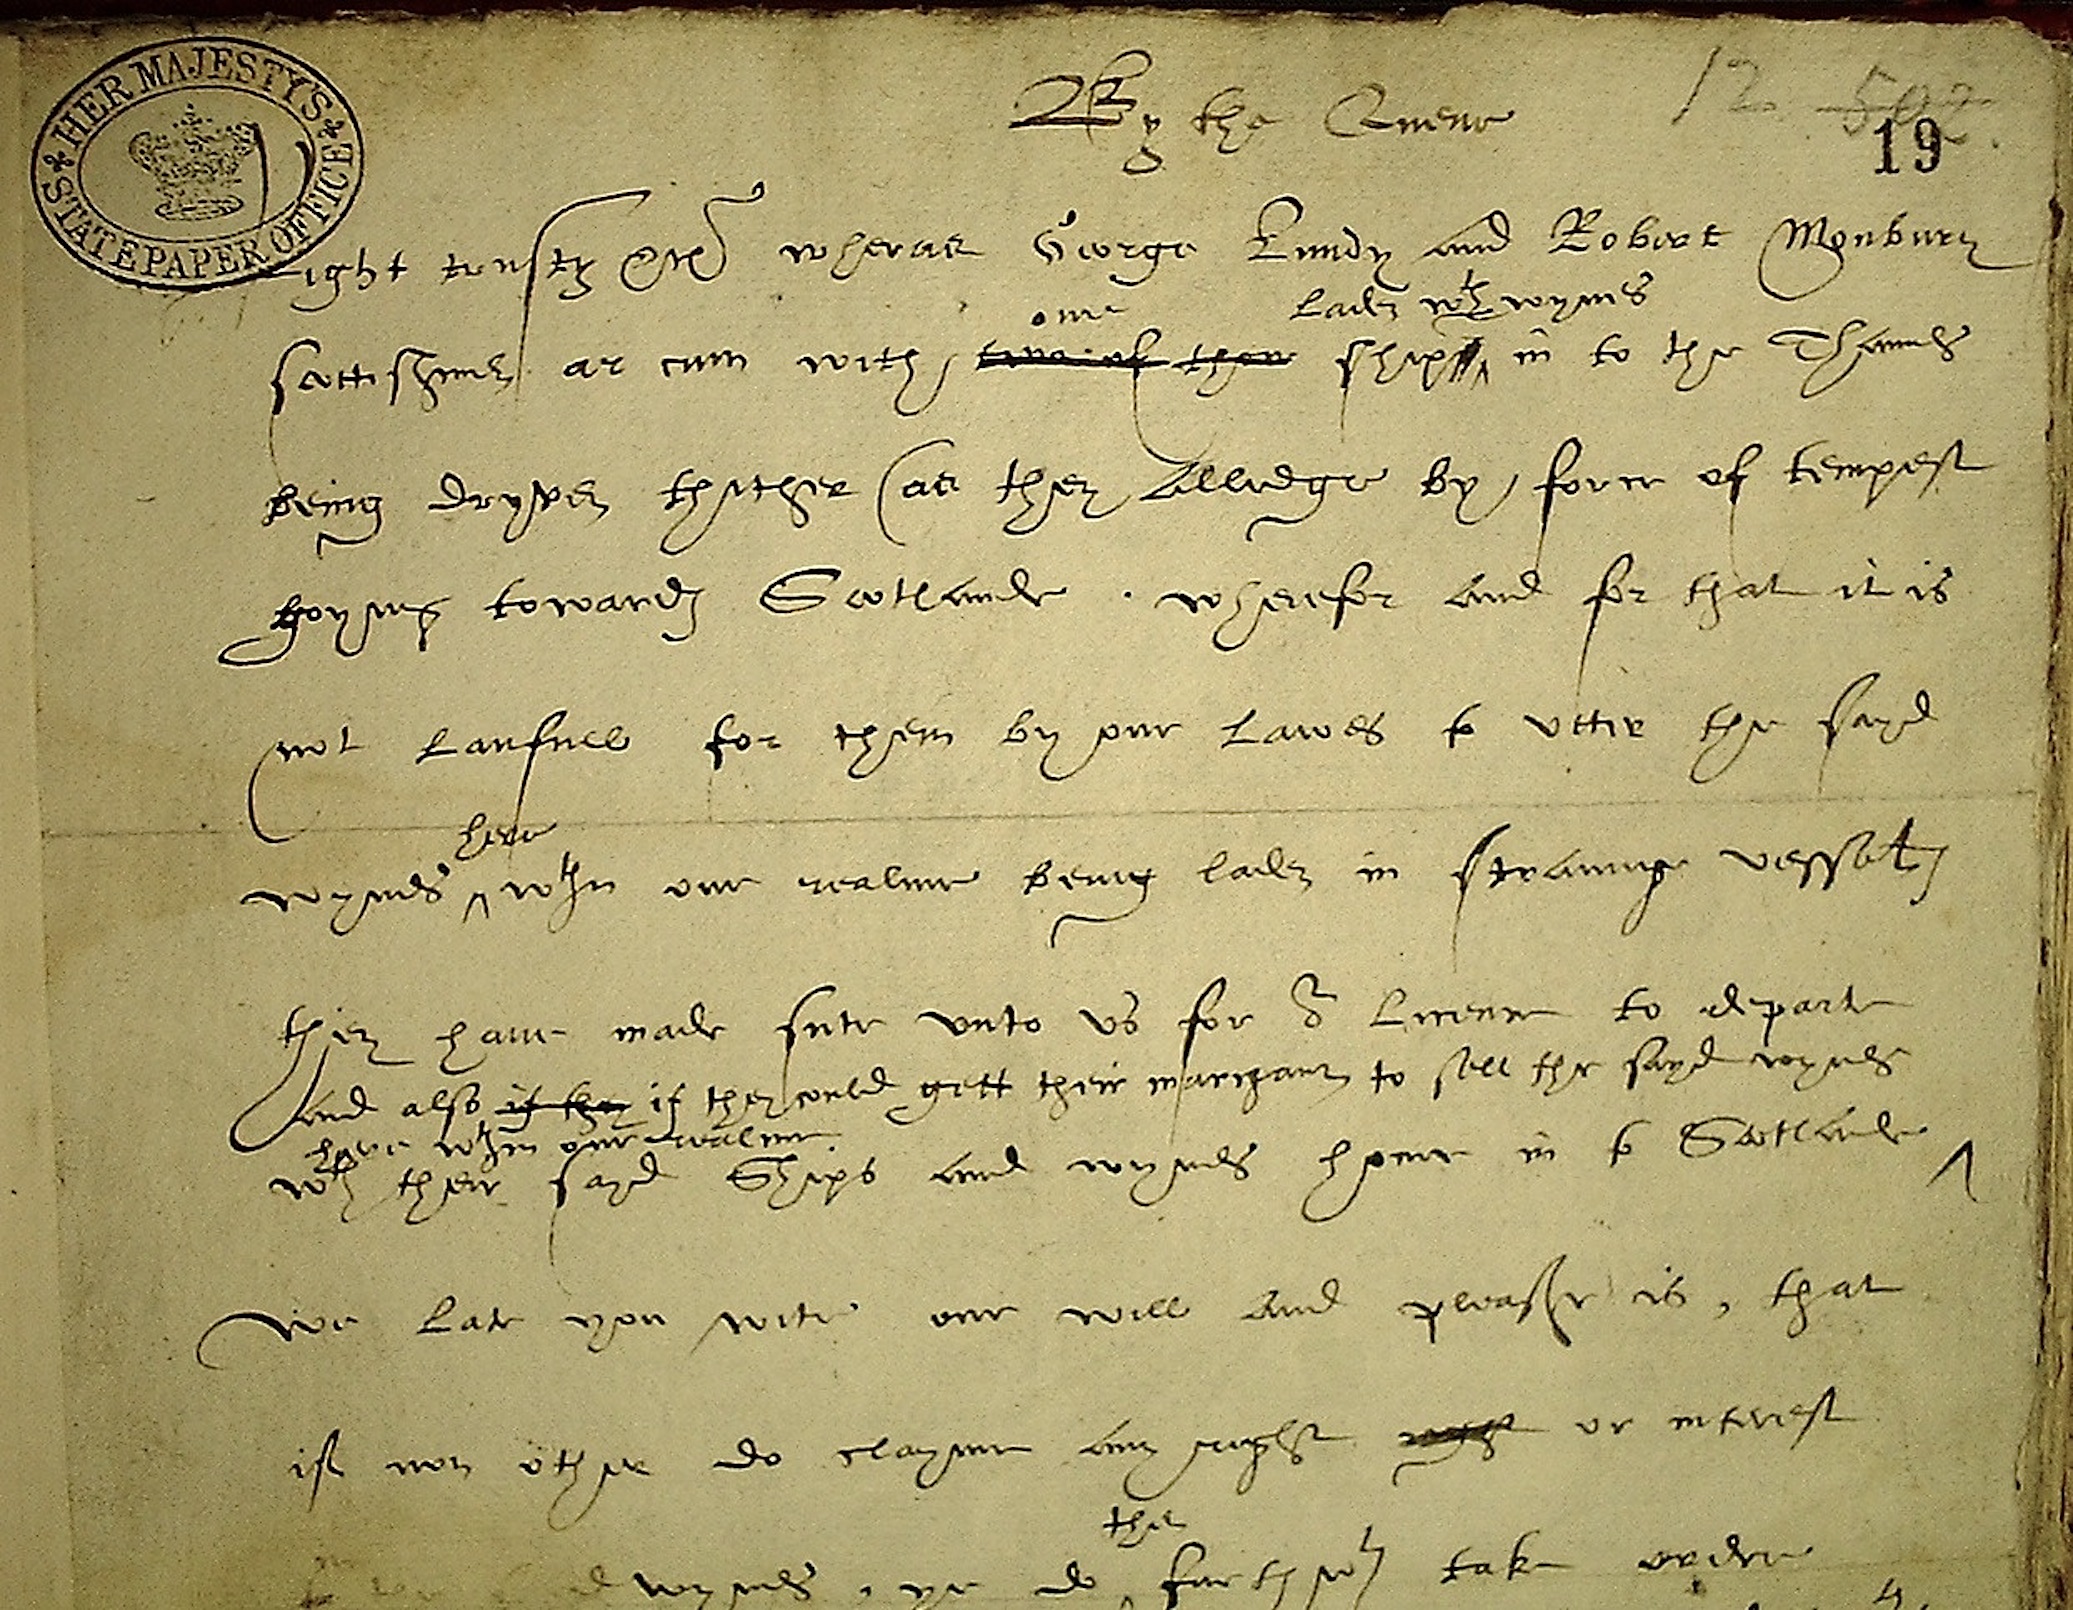 HER MAJESTY'S STATE PAPER OFFICE
By the Quene
12 502
19
Right trusty &c wheras George Lundy and Robert Monbury
one laden wth wynes
scottishmen ar cum with two of their ship in to the Thames
being dryven thither (as they alledge by force of tempest
goyng towards Scotlande . wherefor and for that it is
not laufull for them by our lawes to utter the sayd
here
wynes wthin our realme being laden in straunge vessells
they have made sute unto us for licence to departe
and also if they if they could gett their marchantz to sell the sayd wynes
here wthin our realme
wth their sayd ships and wynes home in to Scotlande
we late you wite our will and pleasr is, that
if non other do clayme any right right or interest
the
wynes , ye do furthwth take ordre